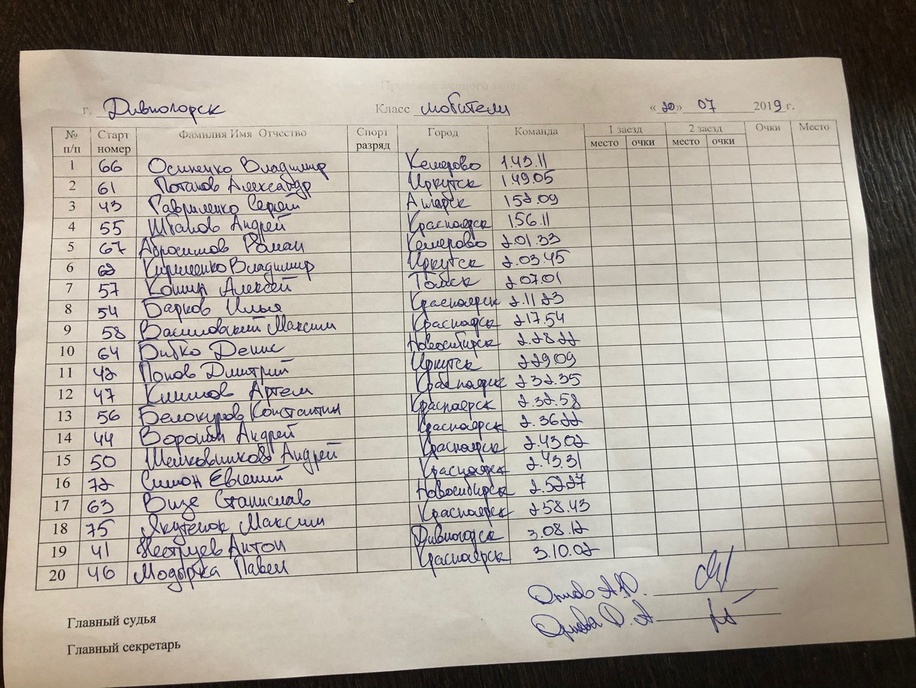 г. Дивногорск Класс любители «20» 07 2019 г.
№ п/п Старт номер Фамилия Имя Отчество Спорт разряд Город Команда 1 заезд 2 заезд Очки Место
место очки место очки
1 66 Осипенко Владимир Кемерово 1.43.11
2 61 Потапов Александр Иркутск 1.49.05
3 43 Гавриленко Сергей Ангарск 1.52.09
4 55 Штапов Андрей Красноярск 1.56.11
5 67 Абросимов Роман Кемерово 2.01.33
6 62 Кириленко Владимир Иркутск 2.03.45
7 57 Кошик Алексей 2.07.01
8 54 Барков Илья Красноярск 2.11.23
9 58 Василовский Максим Красноярск 2.17.54
10 64 Битко Денис Новосибирск 2.28.22
11 42 Попов Дмитрий Иркутск 2.29.09
12 47 Климов Артем Красноярск 2.32.35
13 56 Белокуров Константин Красноярск 2.32.58
14 44 Воронин Андрей Красноярск 2.36.22
15 50 Андрей Красноярск 2.43.02
16 72 Симон Евгений Красноярск 2.43.31
17 63 Визе Станислав Новосибирск 2.52.27
18 75 Якутенок Максим Красноярск 2.58.43
19 41 Антон Дивногорск 3.08.12
20 46 Модырка Павел Красноярск 3.10.02
Главный судья А.Ю.
Главный секретарь Орлова О. А